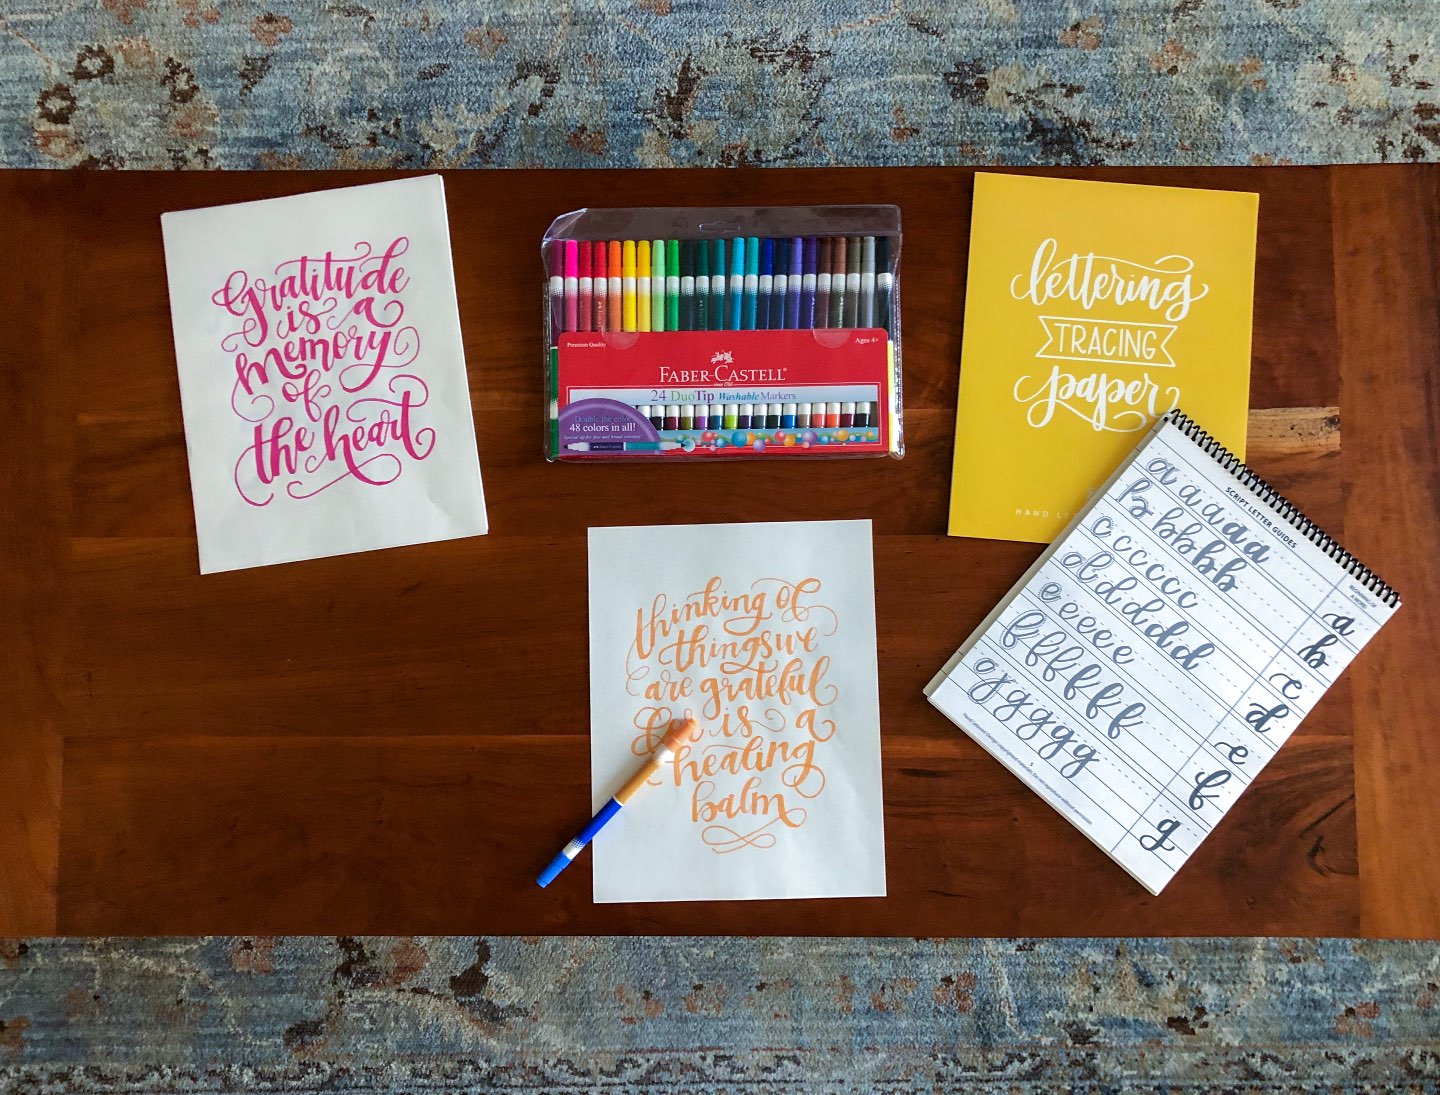 Gratitude
is a
memory
of
the heart
Premium Quality
Ages 4+
FABER-CASTELL
since 1761
24 DuoTip Washable Markers
Double the color
48 colors in all!
lettering
TRACING
paper
HAND LE
thinking of
things we
are grateful
is a
healing
balm
SCRIPT LETTER GUIDES
BEGINNING OF
A WORD
a a a a a a
b b b b b b
c c c c c c
d d d d d d
e e e e e
f f f f f f
g g g g g g
a
b
c
d
e
f
g